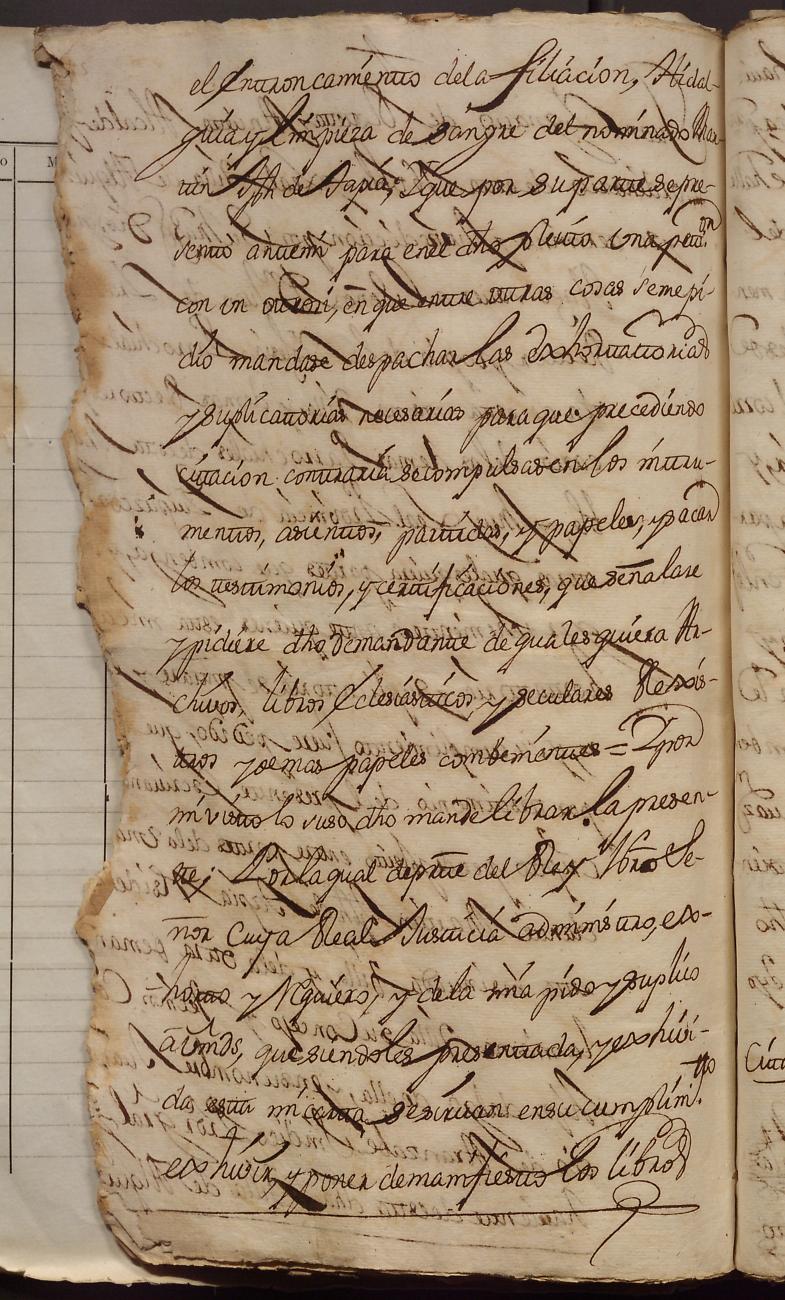 el Entroncamiento de la filiacion, Hidal-
guia y limpieza de sangre del nominado Mar-
tin Jph de Tapia; Y que por su parte se pre-
sentó antemi para en el dho pleito Una petiz.on
con un otrosi, en que entre otras cosas se me pi-
dio mandase despachar las exhortatorias
y suplicatorias necesarias para que precediendo
citacion contraria se compulsasen los intru-
mentos, asientos, partidas, y papeles, y sacar
los testimonios, y certificaciones, que señalare
y pidiere dho demandante de quales quiera Ar-
chivos, libros Eclesiasticos, y seculares Rexis-
tros y demas papeles combenientes = Y por
mi visto lo suso dho mande librar la presen-
te; Por la qual de prte del Rey Nro Se-
ñor Cuya Real Justicia administro, ex-
horto y Rquiero, y de la mia pido y suplico
a Vmds, que siendoles presentada, y exhivi-
da esta mi carta se sirvan en su cumplim.to
exhivir, y poner de manifiesto los libros